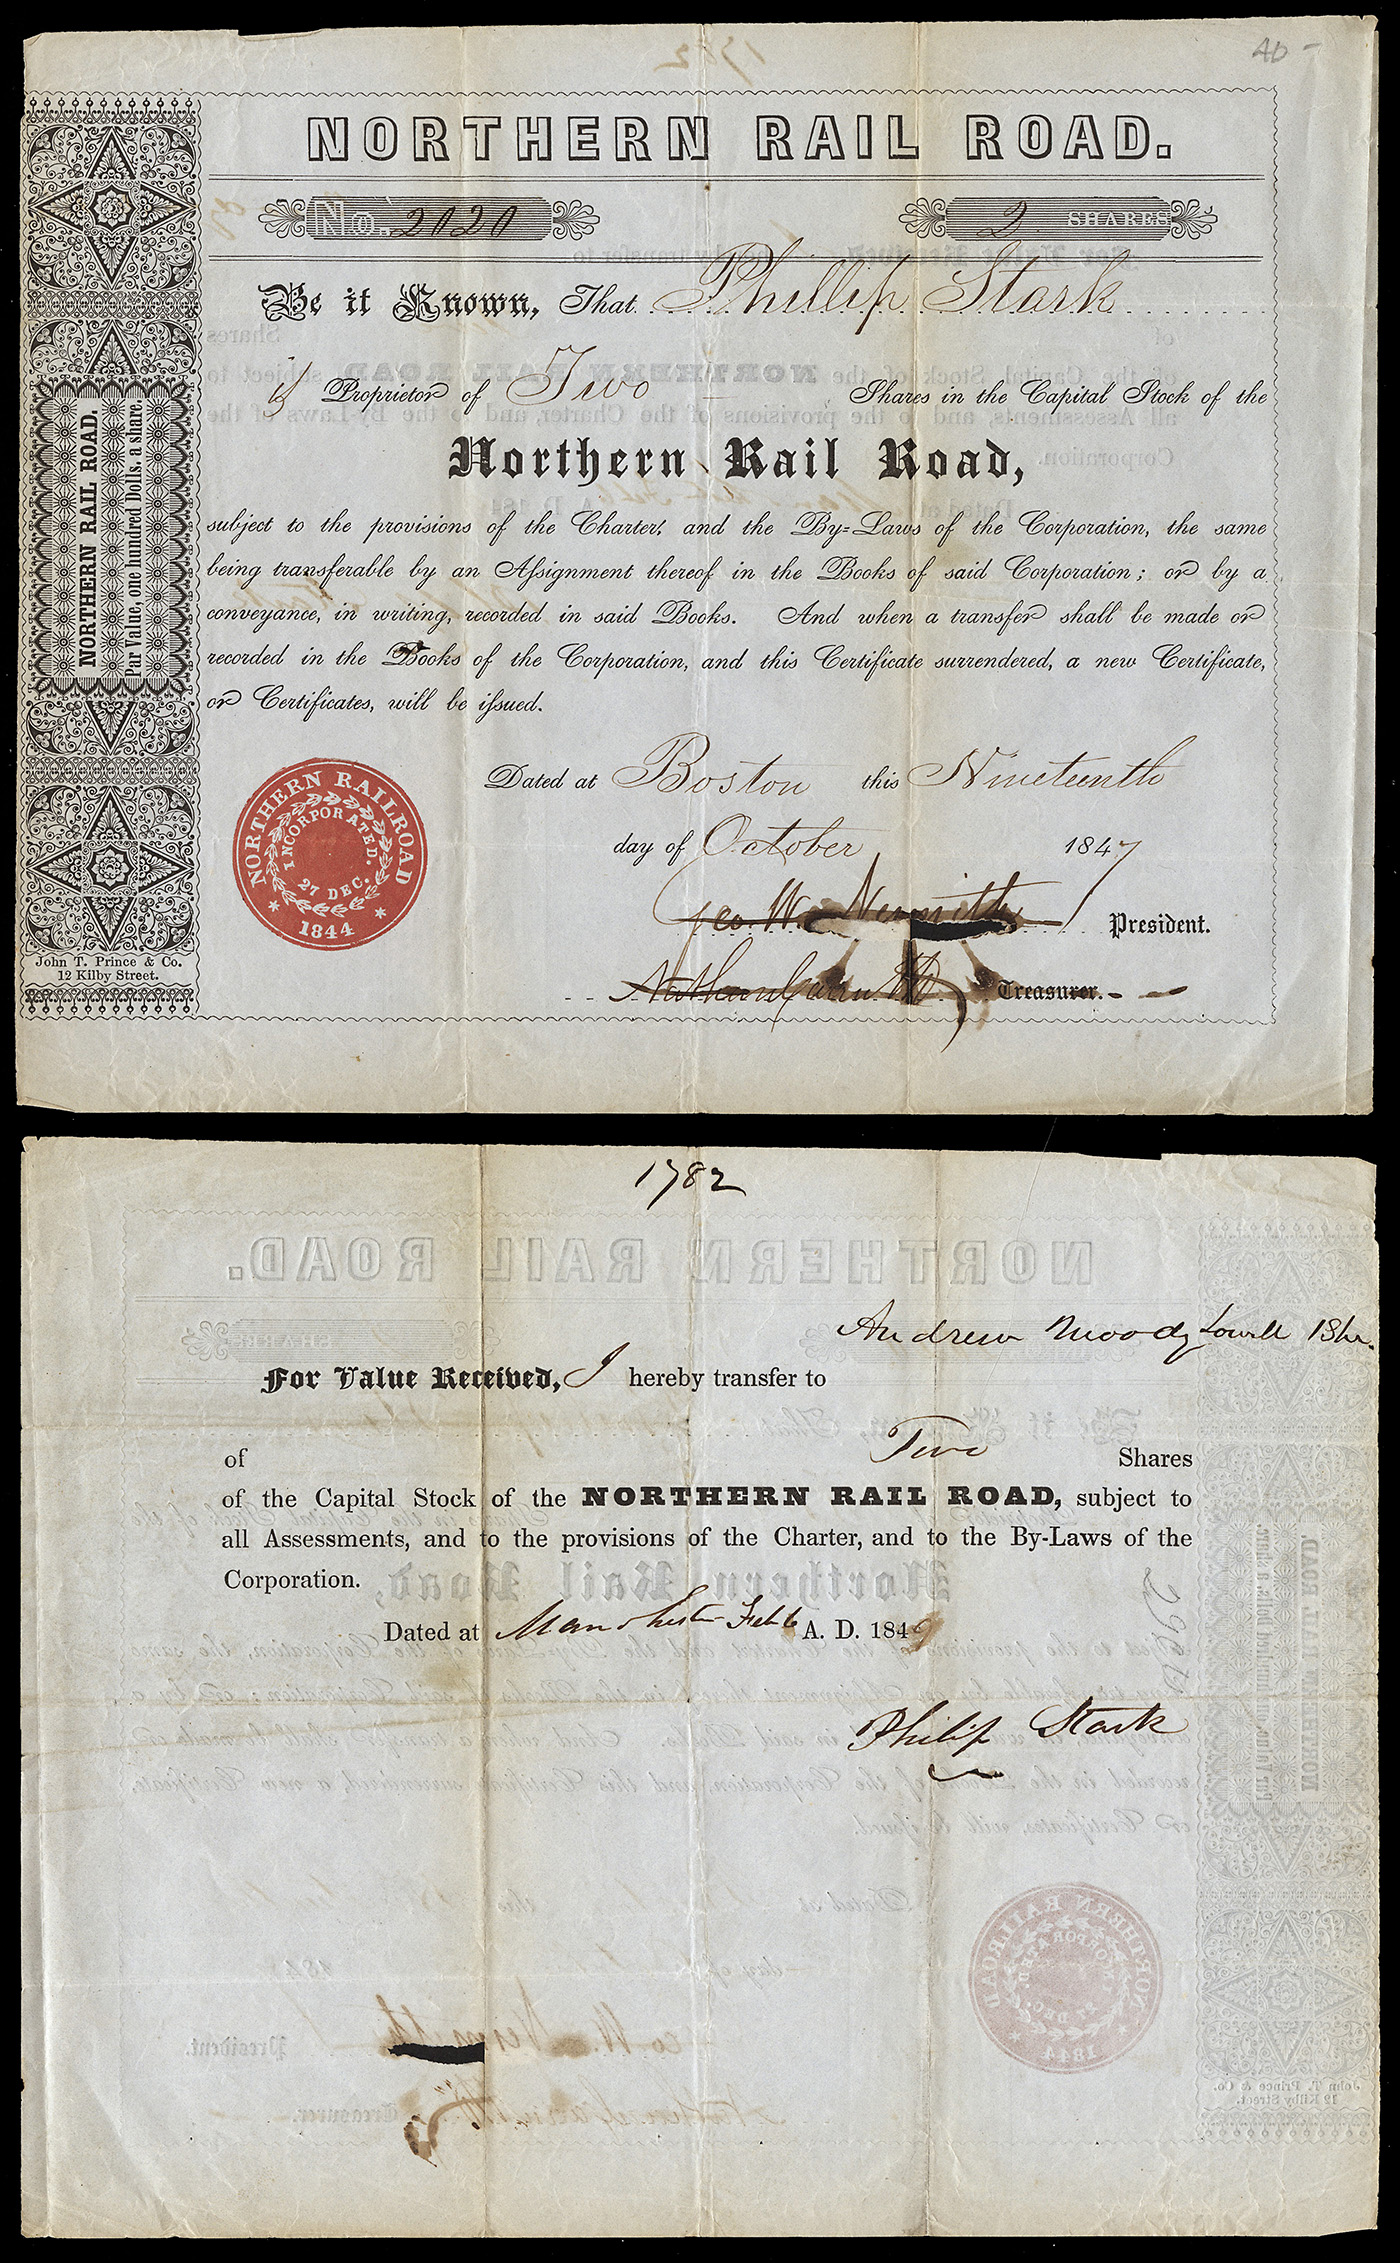 40 -
NORTHERN RAIL ROAD.
No. 2020
2 SHARES
Be it Known, That Phillip Stark
is Proprietor of Two Shares in the Capital Stock of the
Northern Rail Road,
subject to the provisions of the Charter, and the By-Laws of the Corporation, the same
being transferable by an Assignment thereof in the Books of said Corporation; or by a
conveyance, in writing, recorded in said Books. And when a transfer shall be made or
recorded in the Books of the Corporation, and this Certificate surrendered, a new Certificate,
or Certificates, will be issued.
Dated at Boston this Nineteenth
day of October 1847
Geo. W. Nesmith President.
Nathan Treasurer.
NORTHERN RAIL ROAD.
Par Value, one hundred Dolls. a share.
NORTHERN RAILROAD
INCORPORATED.
27 DEC.
* 1844 *
John T. Prince & Co.
12 Kilby Street.
1782
Andrew Moody Lowell 1Shr.
For Value Received, I hereby transfer to
of Two Shares
of the Capital Stock of the NORTHERN RAIL ROAD, subject to
all Assessments, and to the provisions of the Charter, and to the By-Laws of the
Corporation.
Dated at Manchester Feb 6 A. D. 1849
Philip Stark